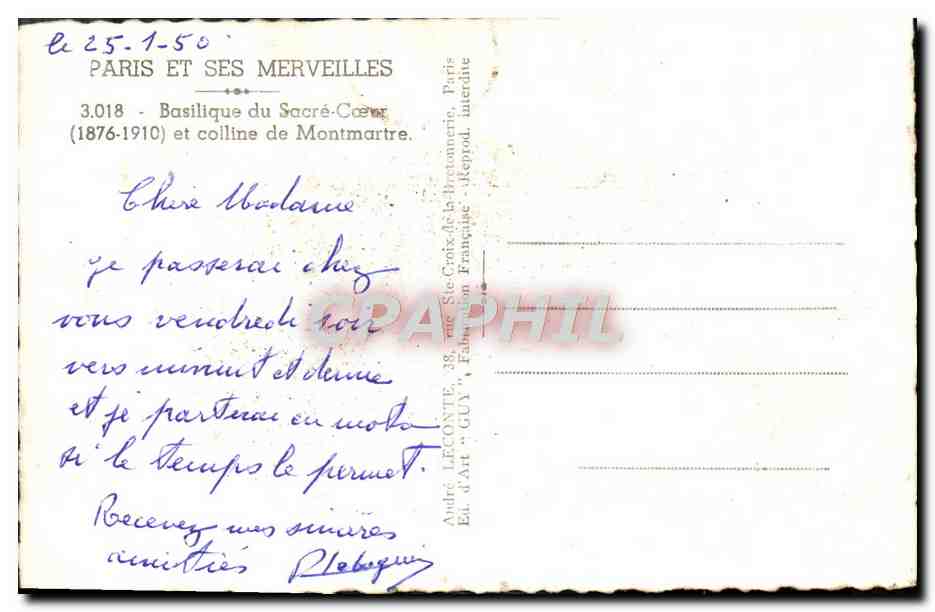 le 25-1-50
PARIS ET SES MERVEILLES
3.018 - Basilique du Sacré-Cœur
(1876-1910) et colline de Montmartre.
Chère Madame
je passerai chez
vous vendredi soir
vers minuit et demie
et je partirai en moto
si le temps le permet.
Recevez mes sincères
amitiés
André LECONTE, 38, rue Ste-Croix-de-la-Bretonnerie, Paris
Ed. d'Art "GUY", Fabrication Française - Reprod. interdite
CPAPHIL